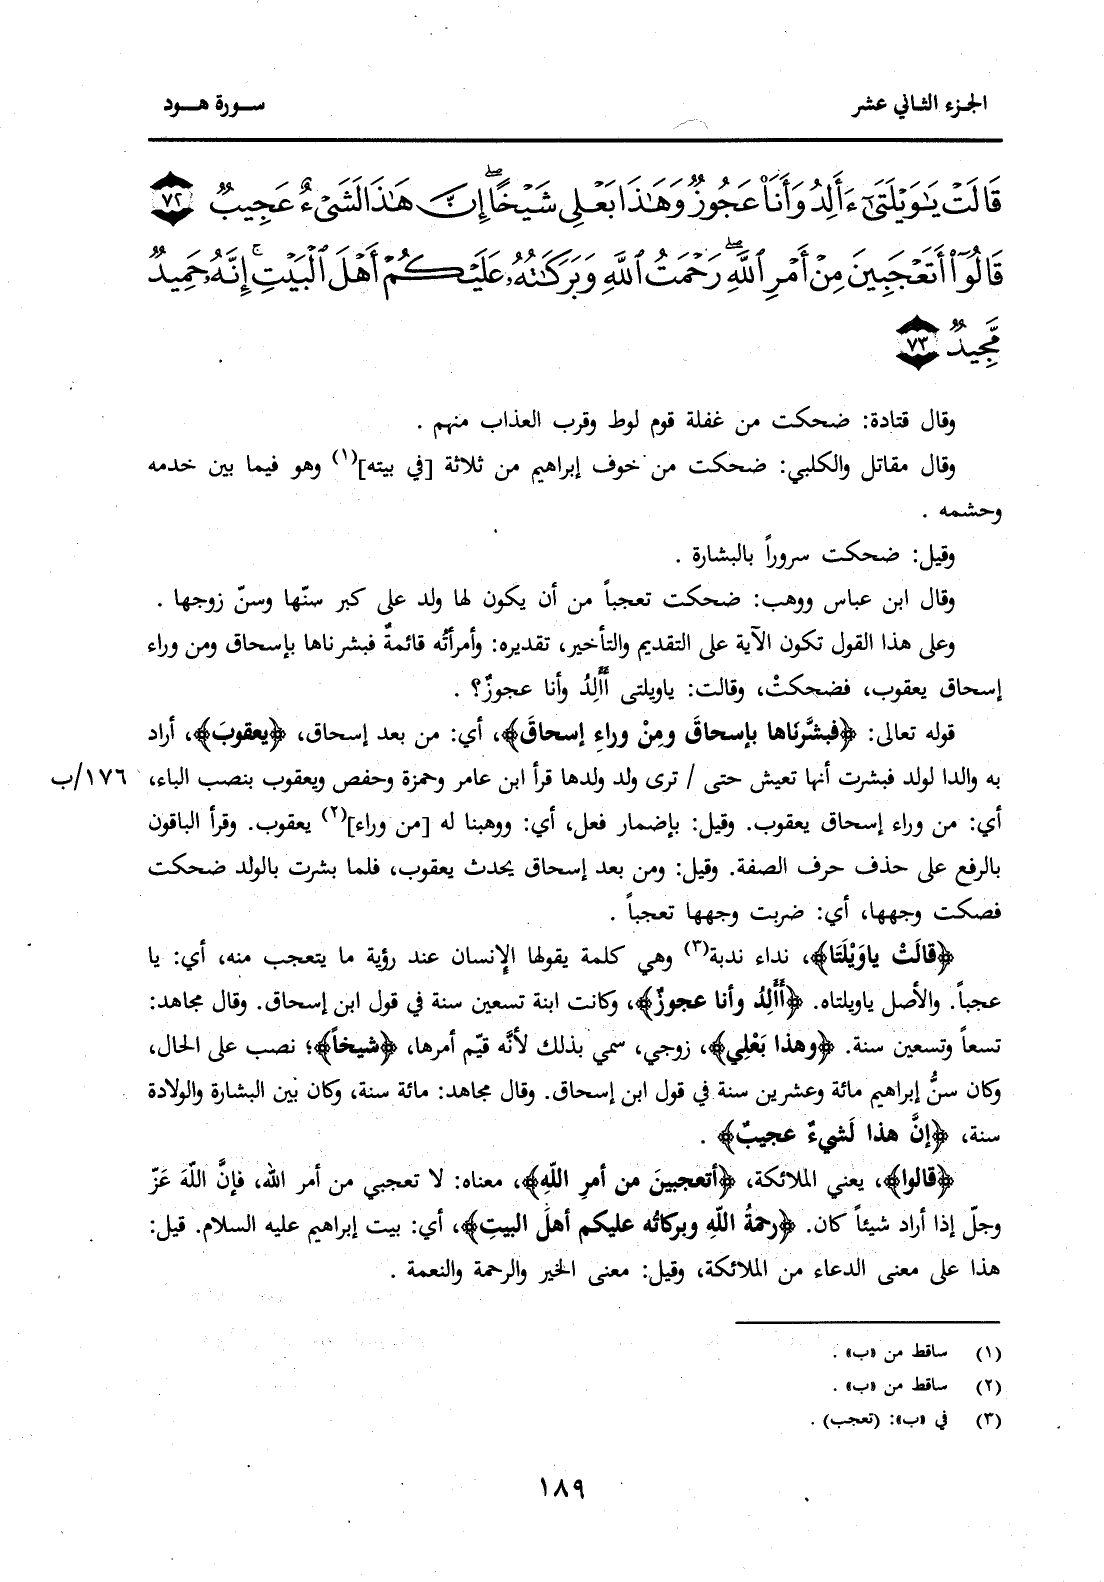 الجزء الثاني عشر
سورة هود
قَالَتْ يَٰوَيْلَتَىٰٓ ءَأَلِدُ وَأَنَا۠ عَجُوزٌ وَهَٰذَا بَعْلِى شَيْخًا ۖ إِنَّ هَٰذَا لَشَىْءٌ عَجِيبٌ ٧٢
قَالُوٓا۟ أَتَعْجَبِينَ مِنْ أَمْرِ ٱللَّهِ ۖ رَحْمَتُ ٱللَّهِ وَبَرَكَٰتُهُۥ عَلَيْكُمْ أَهْلَ ٱلْبَيْتِ ۚ إِنَّهُۥ حَمِيدٌ
مَّجِيدٌ ٧٣
وقال قتادة: ضحكت من غفلة قوم لوط وقرب العذاب منهم .
وقال مقاتل والكلبي: ضحكت من خوف إبراهيم من ثلاثة [في بيته](١) وهو فيما بين خدمه
وحشمه .
وقيل: ضحكت سروراً بالبشارة .
وقال ابن عباس ووهب: ضحكت تعجباً من أن يكون لها ولد على كبر سنّها وسنّ زوجها .
وعلى هذا القول تكون الآية على التقديم والتأخير، تقديره: وأمرأتُه قائمةٌ فبشرناها بإسحاق ومن وراء
إسحاق يعقوب، فضحكتْ، وقالت: ياويلتى أَأَلِدُ وأنا عجوزٌ؟ .
قوله تعالى: ﴿فبشَّرنَاها بإسحاقَ ومِنْ وراءِ إسحاقَ﴾، أي: من بعد إسحاق، ﴿يعقوبَ﴾، أراد
به والدا لولد فبشرت أنها تعيش حتى / ترى ولد ولدها قرأ ابن عامر وحمزة وحفص ويعقوب بنصب الباء، ١٧٦/ب
أي: من وراء إسحاق يعقوب. وقيل: بإضمار فعل، أي: ووهبنا له [من وراء](٢) يعقوب. وقرأ الباقون
بالرفع على حذف حرف الصفة. وقيل: ومن بعد إسحاق يحدث يعقوب، فلما بشرت بالولد ضحكت
فصكت وجهها، أي: ضربت وجهها تعجباً .
﴿قالَتْ ياوَيْلَتَا﴾، نداء ندبة(٣) وهي كلمة يقولها الإنسان عند رؤية ما يتعجب منه، أي: يا
عجباً. والأصل ياويلتاه. ﴿أَأَلِدُ وأنا عجوزٌ﴾، وكانت ابنة تسعين سنة في قول ابن إسحاق. وقال مجاهد:
تسعاً وتسعين سنة. ﴿وهذا بَعْلِي﴾، زوجي، سمي بذلك لأنَّه قيّم أمرها، ﴿شيخاً﴾؛ نصب على الحال،
وكان سنُّ إبراهيم مائة وعشرين سنة في قول ابن إسحاق. وقال مجاهد: مائة سنة، وكان بين البشارة والولادة
سنة، ﴿إنَّ هذا لَشيءٌ عجيبٌ﴾ .
﴿قالوا﴾، يعني الملائكة، ﴿أتعجبينَ من أمرِ اللّهِ﴾، معناه: لا تعجبي من أمر الله، فإنَّ اللّهَ عَزّ
وجلّ إذا أراد شيئاً كان. ﴿رحمةُ اللّهِ وبركاتُه عليكم أهلَ البيتِ﴾، أي: بيت إبراهيم عليه السلام. قيل:
هذا على معنى الدعاء من الملائكة، وقيل: معنى الخير والرحمة والنعمة .
(١) ساقط من «ب» .
(٢) ساقط من «ب» .
(٣) في «ب»: (تعجب) .
١٨٩